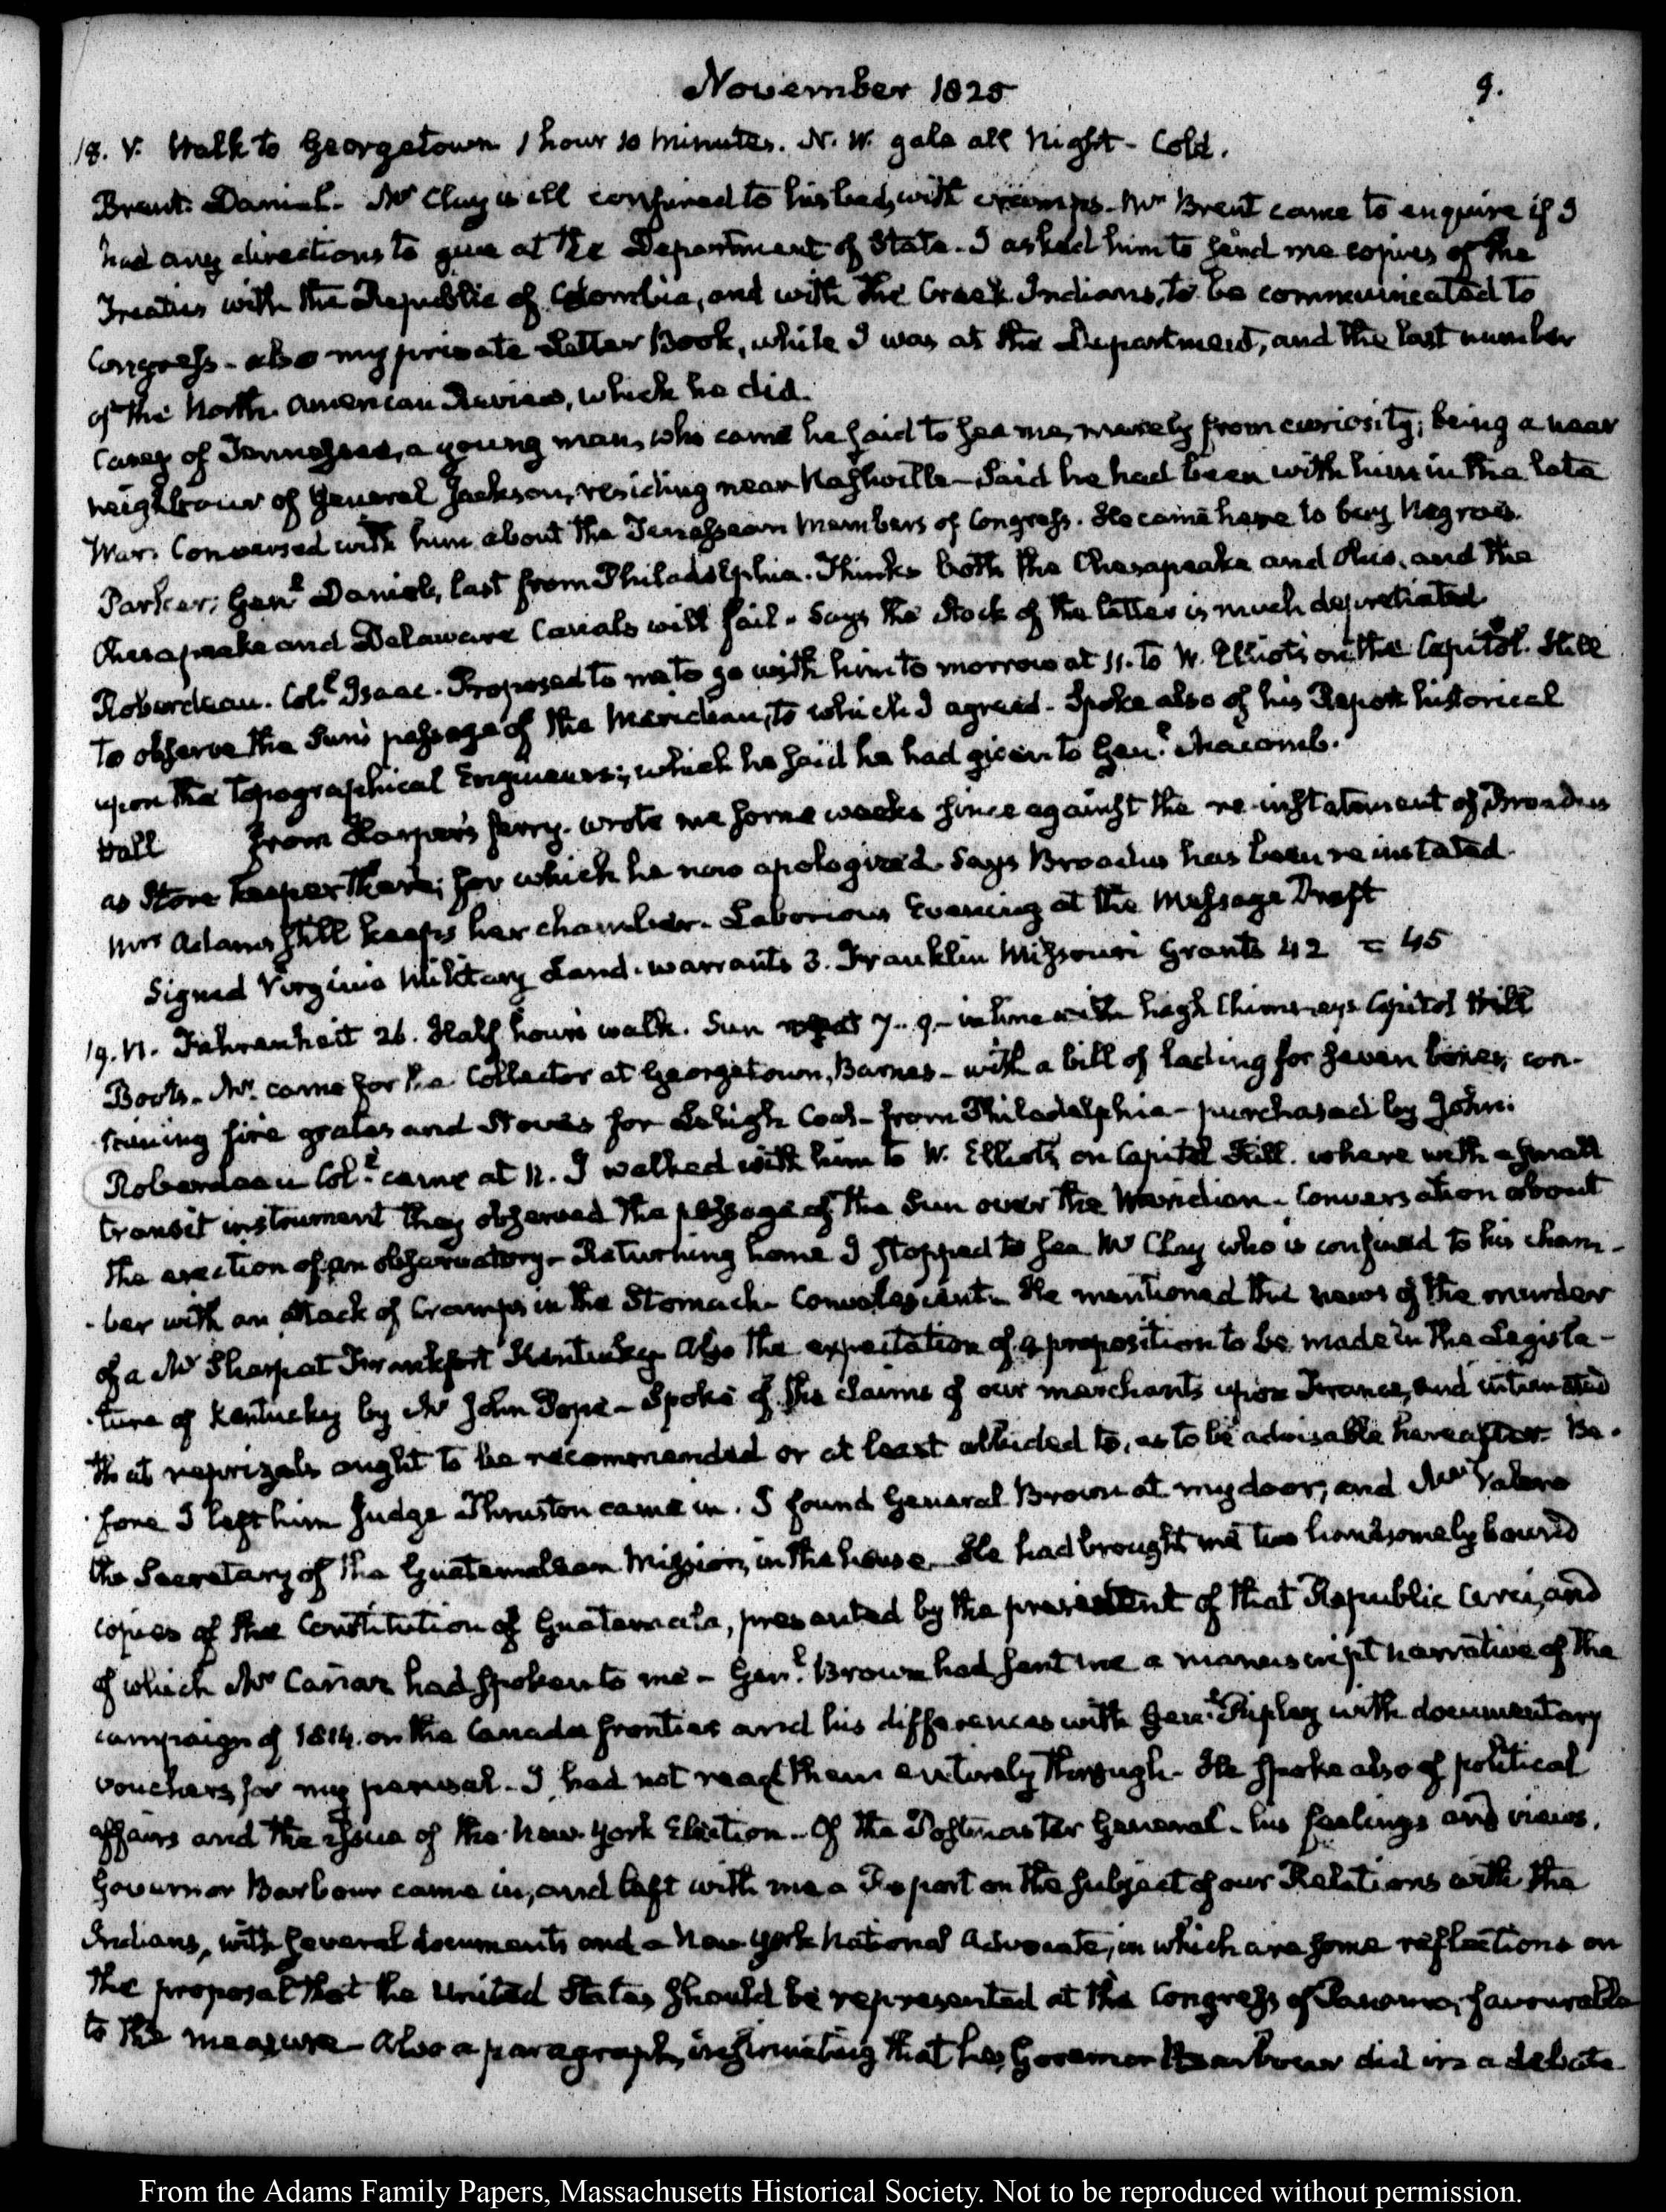 November 1825
9.
18. V. Walk to Georgetown 1 hour 10 minutes. N. W. gale all night - Cold.
Brent. Daniel. Mr Clay is ill confined to his bed, with cramps. Mr Brent came to enquire if I
had any directions to give at the Department of State. I asked him to send me copies of the
Treaties with the Republic of Colombia, and with the Creek Indians, to be communicated to
Congress - also my private Letter Book, while I was at the Department, and the last number
of the North American Review, which he did.
Casey of Tennessee, a young man, who came he said to see me, merely from curiosity; being a near
neighbour of General Jackson, residing near Nashville - Said he had been with him in the late
War. Conversed with him about the Tennessean Members of Congress. He came here to buy Negroes.
Parker, Genl Daniel, last from Philadelphia. Thinks both the Chesapeake and Ohio, and the
Chesapeake and Delaware Canals will fail. Says the Stock of the latter is much depretiated
Roberdeau. Coll Isaac. Proposed to me to go with him to morrow at 11. to W. Elliot's on the Capitol Hill
to observe the Sun's passage of the Meridian, to which I agreed - Spoke also of his Report historical
upon the Topographical Engineers; which he said he had given to Genl Macomb.
Wall from Harper's ferry. wrote me some weeks since against the re-instatement of Broadus
as Store keeper there; for which he now apologized. Says Broadus has been reinstated.
Mrs Adams still keeps her chamber. Laborious Evening at the Message Draft
Signed Virginia Military Land. warrants 3. Franklin Missouri Grants 42 = 45
19. VI. Fahrenheit 26. Half hour's walk. Sun 7.. 9. - in line with high Chimneys Capitol Hill
Boots. Mr. came for the Collector at Georgetown, Barnes - with a bill of lading for seven boxes, con-
taining fire grates and Stoves for Lehigh Coal - from Philadelphia - purchased by John.
Roberdeau Coll. came at 11. I walked with him to W. Elliot's on Capitol Hill. where with a small
transit instrument they observed the passage of the Sun over the Meridian - Conversation about
the erection of an observatory - Returning home I stopped to see Mr Clay who is confined to his cham-
-ber with an attack of Cramps in the Stomach - Convalescent. He mentioned the news of the murder
of a Mr Sharp at Frankfort Kentucky. Also the expectation of a proposition to be made in the Legisla-
-ture of Kentucky by Mr John Pope - Spoke of the claims of our merchants upon France, and intimated
that reprizals ought to be recommended or at least alluded to, as to be advisable hereafter. Be-
fore I left him Judge Thruston came in. I found General Brown at my door, and Mr Valero
the Secretary of the Guatemalean Mission, in the house. He had brought me two handsomely bound
copies of the Constitution of Guatemala, presented by the president of that Republic Arce, and
of which Mr Cañaz had spoken to me - Genl. Brown had sent me a manuscript narrative of the
campaign of 1814. on the Canada frontier and his differences with Genl. Ripley with documentary
vouchers for my perusal - I had not read them entirely through - He spoke also of political
affairs and the issue of the New-York Election - Of the Postmaster General - his feelings and views.
Governor Barbour came in, and left with me a Report on the subject of our Relations with the
Indians, with several documents and a New York National Advocate, in which are some reflections on
the proposal that the United States should be represented at the Congress of Panama, favourable
to the measure - Also a paragraph, insinuating that he, Governor Barbour did in a debate
From the Adams Family Papers, Massachusetts Historical Society. Not to be reproduced without permission.